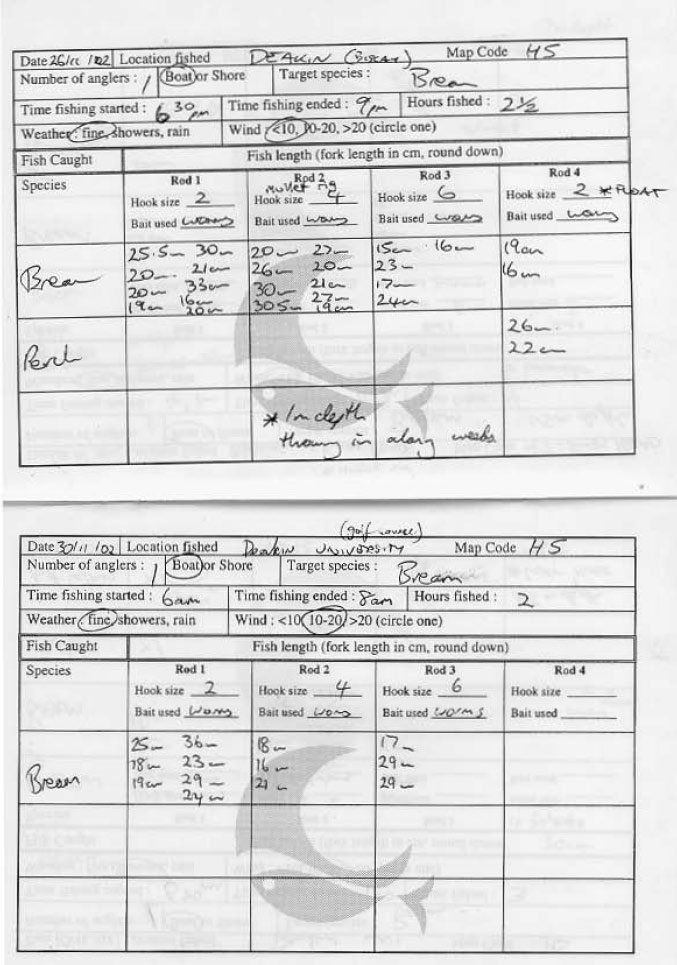 Date 26/11/02 Location fished DEAKIN Map Code H5
Number of anglers : 1 Boat or Shore Target species : Bream
Time fishing started : 6 30 pm Time fishing ended : 9pm Hours fished : 2½
Weather : fine, showers, rain Wind : <10, 10-20, >20 (circle one)
Fish Caught Fish length (fork length in cm, round down)
Species Rod 1 Rod 2 Rod 3 Rod 4
Mullet rig
Hook size 2 Hook size 4 Hook size 6 Hook size 2 * FLOAT
Bait used worms Bait used worms Bait used worms Bait used worms
25.5cm 30cm 20cm 27cm 15cm 16cm 19cm
Bream 20cm 21cm 26cm 20cm 23cm 16cm
20cm 33cm 30cm 21cm 17cm
19cm 16cm 30.5cm 27cm 24cm
20cm 19cm
Perch 26cm
22cm
* 1m depth
throwing in along weeds
(golf course)
Date 30/11/02 Location fished Deakin UNIVERSITY Map Code H5
Number of anglers : 1 Boat or Shore Target species : Bream
Time fishing started : 6am Time fishing ended : 8am Hours fished : 2
Weather fine, showers, rain Wind : <10, 10-20, >20 (circle one)
Fish Caught Fish length (fork length in cm, round down)
Species Rod 1 Rod 2 Rod 3 Rod 4
Hook size 2 Hook size 4 Hook size 6 Hook size
Bait used Worms Bait used Worms Bait used Worms Bait used
25cm 36cm 18cm 17cm
Bream 18cm 23cm 16cm 29cm
19cm 29cm 21cm 29cm
24cm